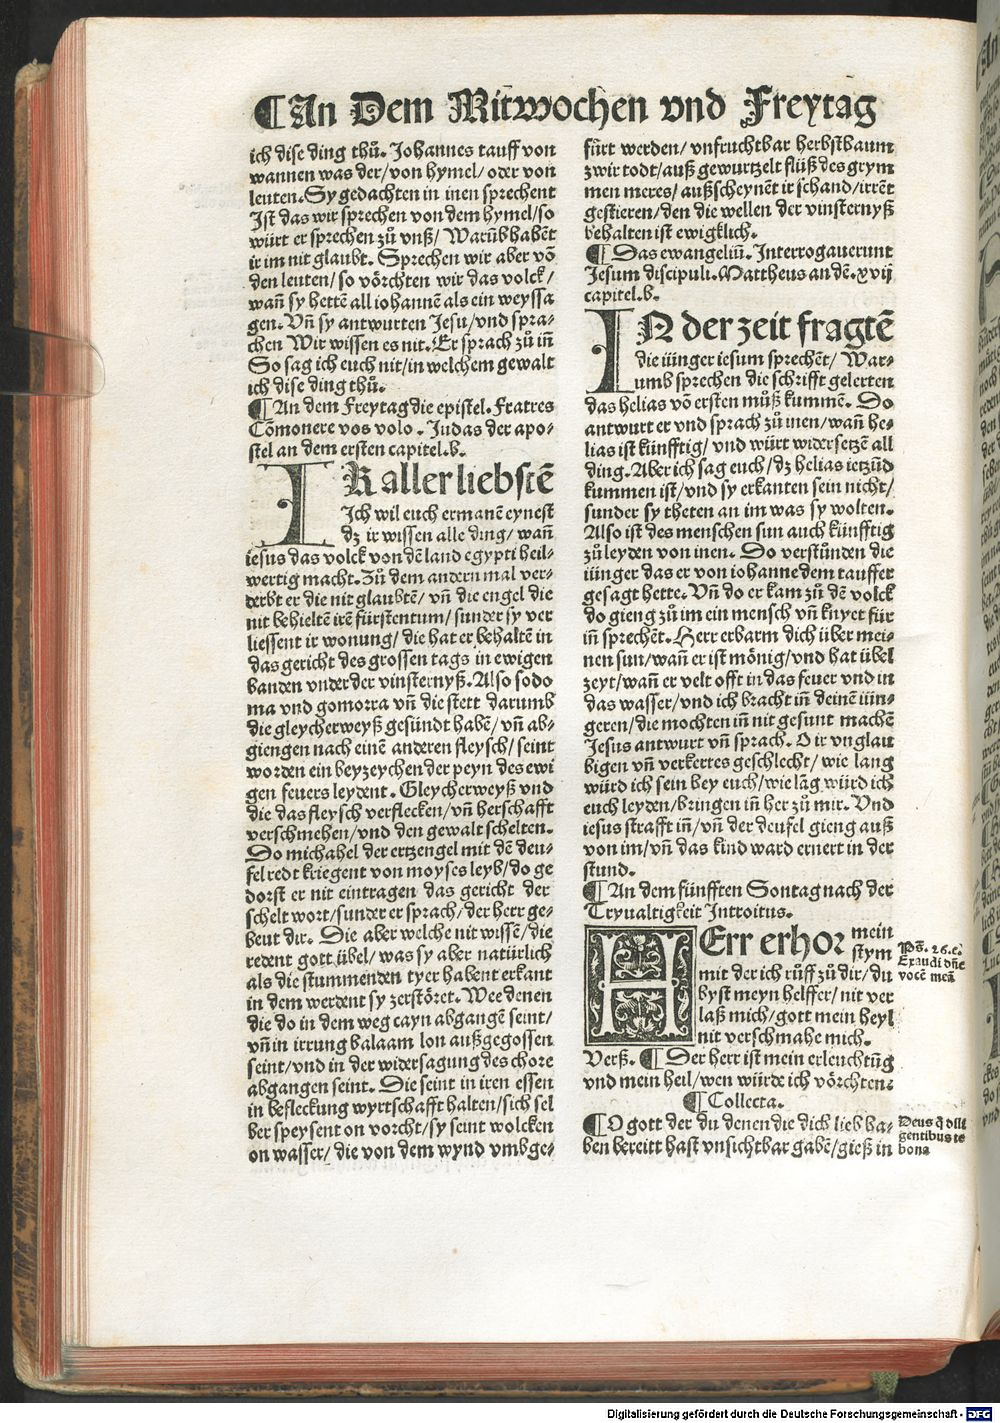 ¶An Dem Mitwochen vnd Freytag
ich dise ding thů. Johannes tauff von
wannen was der/von hymel/ oder von
leuten. Sy gedachten in inen sprechent
Ist das wir sprechen von dem hymel/so
würt er sprechen zů vnß/ Warūb habēt
ir im nit glaubt. Sprechen wir aber vō
den leuten/ so vörchten wir das volck/
wañ sy hettē all iohannē als ein weyssa
gen. Vñ sy antwurten Jesu/vnd spra-
chen Wir wissen es nit. Er sprach zů iñ
So sag ich euch nit/in welchem gewalt
ich dise ding thů.
¶An dem Freytag die epistel. Fratres
Cōmonere vos volo. Judas der apo-
stel an dem ersten capitel.b.
IR aller liebstē
Ich wil euch ermanē eynest
dz ir wissen alle ding/ wañ
iesus das volck von dē land egypti heil-
wertig macht. Zů dem andern mal ver-
derbt er die nit glaubtē/ vñ die engel die
nit behieltē irē fürstentum/ sunder sy ver
liessent ir wonung/ die hat er behaltē in
das gericht des grossen tags in ewigen
banden vnder der vinsternyß. Also sodo
ma vnd gomorra vñ die stett darumb
die gleycherweyß gesündt habē/ vñ ab-
giengen nach einē anderen fleysch/ seint
worden ein beyzeychen der peyn des ewi
gen feuers leydent. Gleycherweyß vnd
die das fleysch verflecken/ vñ herschafft
verschmehen/vnd den gewalt schelten.
Do michahel der ertzengel mit dē deu-
fel redt kriegent von moyses leyb/do ge
dorst er nit eintragen das gericht der
schelt wort/sunder er sprach/ der herr ge-
beut dir. Die aber welche nit wissē/ die
redent gott übel/ was sy aber natürlich
als die stummenden tyer habent erkant
in dem werdent sy zerstöret. Wee denen
die do in dem weg cayn abgangē seint/
vñ in irrung balaam lon außgegossen
seint/vnd in der widersagung des chore
abgangen seint. Die seint in iren essen
in befleckung wyrtschafft halten/sich sel
ber speysent on vorcht/sy seint wolcken
on wasser/ die von dem wynd vmbge-
fürt werden/ vnfruchtbar herbstbaum
zwir todt/ auß gewurtzelt flüß des grym
men meres/ außscheynēt ir schand/irrēt
gestieren/den die wellen der vinsternyß
behalten ist ewigklich.
¶Das ewangeliū. Interrogauerunt
Jesum discipuli. Mattheus an dē.xvij
capitel.b.
IN der zeit fragtē
die iünger iesum sprechēt/ War-
umb sprechen die schrifft gelerten
das helias vō ersten můß kummē. Do
antwurt er vnd sprach zů inen/ wañ he-
lias ist künfftig/ vnd würt widersetzē all
ding. Aber ich sag euch/dz helias ietzūd
kummen ist/vnd sy erkanten sein nicht/
sunder sy theten an im was sy wolten.
Also ist des menschen sun auch künfftig
zů leyden von inen. Do verstůnden die
iünger das er von iohanne dem tauffer
gesagt hette. Vñ do er kam zů dē volck
do gieng zů im ein mensch vñ knyet für
iñ sprechēt. Herr erbarm dich über mei-
nen sun/wañ er ist mönig/vnd hat übel
zeyt/wañ er velt offt in das feuer vnd in
das wasser/vnd ich bracht iñ deinē iün-
geren/die mochten iñ nit gesunt machē
Jesus antwurt vñ sprach. O ir vnglau
bigen vñ verkertes geschlecht/ wie lang
würd ich sein bey euch/wie lāg würd ich
euch leyden/bringen iñ her zů mir. Vnd
iesus strafft iñ/vñ der deufel gieng auß
von im/vñ das kind ward ernert in der
stund.
¶An dem fünfften Sontag nach der
Tryualtigkeit Introitus.
HErr erhor mein
stym
mit der ich růff zů dir/du
byst meyn helffer/ nit ver
laß mich/gott mein heyl
nit verschmahe mich.
Verß. ¶Der herr ist mein erleuchtūg
vnd mein heil/wen würde ich vörchten.
¶Collecta.
¶O gott der du denen die dich lieb ha-
ben bereitt hast vnsichtbar gabē/gieß in
Ps̄. 26.c.
Exaudi dn̄e
vocē meā
Deus q̄ dili
gentibus te
bona
Digitalisierung gefördert durch die Deutsche Forschungsgemeinschaft - DFG